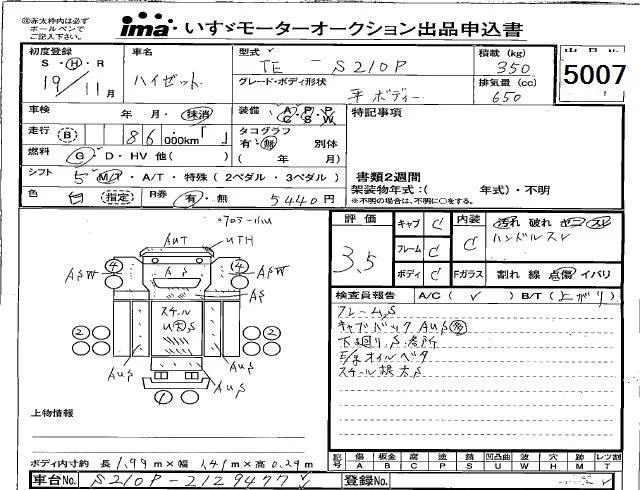 ㊟赤太枠内は必ず
ボールペンで
ご記入下さい。
ima いすゞモーターオークション出品申込書
出品No.
5007
初度登録 車名 型式 積載 (kg)
S・H・R ハイゼット TE - S210P 350
19/11月 グレード・ボディ形状 排気量 (cc)
平ボディー 650
車検 年 月・抹消 装備 A/C P/S P/W 特記事項
走行 B 86,000km「 」 タコグラフ
有・無 別体
燃料 G・D・HV 他( ) ( 年 月)
シフト 5 M/T・A/T・特殊(2ペダル・3ペダル) 書類2週間
架装物年式:( 年式)・不明
※不明の場合は、不明に○をする。
色 白 指定 R券 有・無 5440円
評価 キャブ C 内装 汚れ 破れ セコ スレ
3.5 フレーム C C ハンドルスレ
ボディ C Fガラス 割れ 線 点傷 イバリ
検査員報告 A/C (✓) B/T (上がり)
フレームS
キャブバックAUS多
下廻りS
E/gオイルベタ
スチール根太S
AUT UTH
4 ASW AS 4 ASW
AS
スチール
US
2 2
AUS AUS
上物情報
ボディ内寸約 長 1.99m×幅 1.41m×高 0.29m
記号 傷 板金 腐 塗 錆 凹凸曲 波 穴 跡 レンズ割
A B C P S U W H M T
車台No. S210P-2129477 登録No.